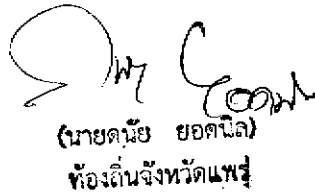 (นายดนัย ยอดนิล)
ท้องถิ่นจังหวัดแพร่